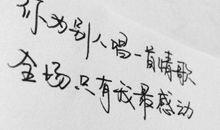 你为别人唱一首情歌
全场只有我最感动